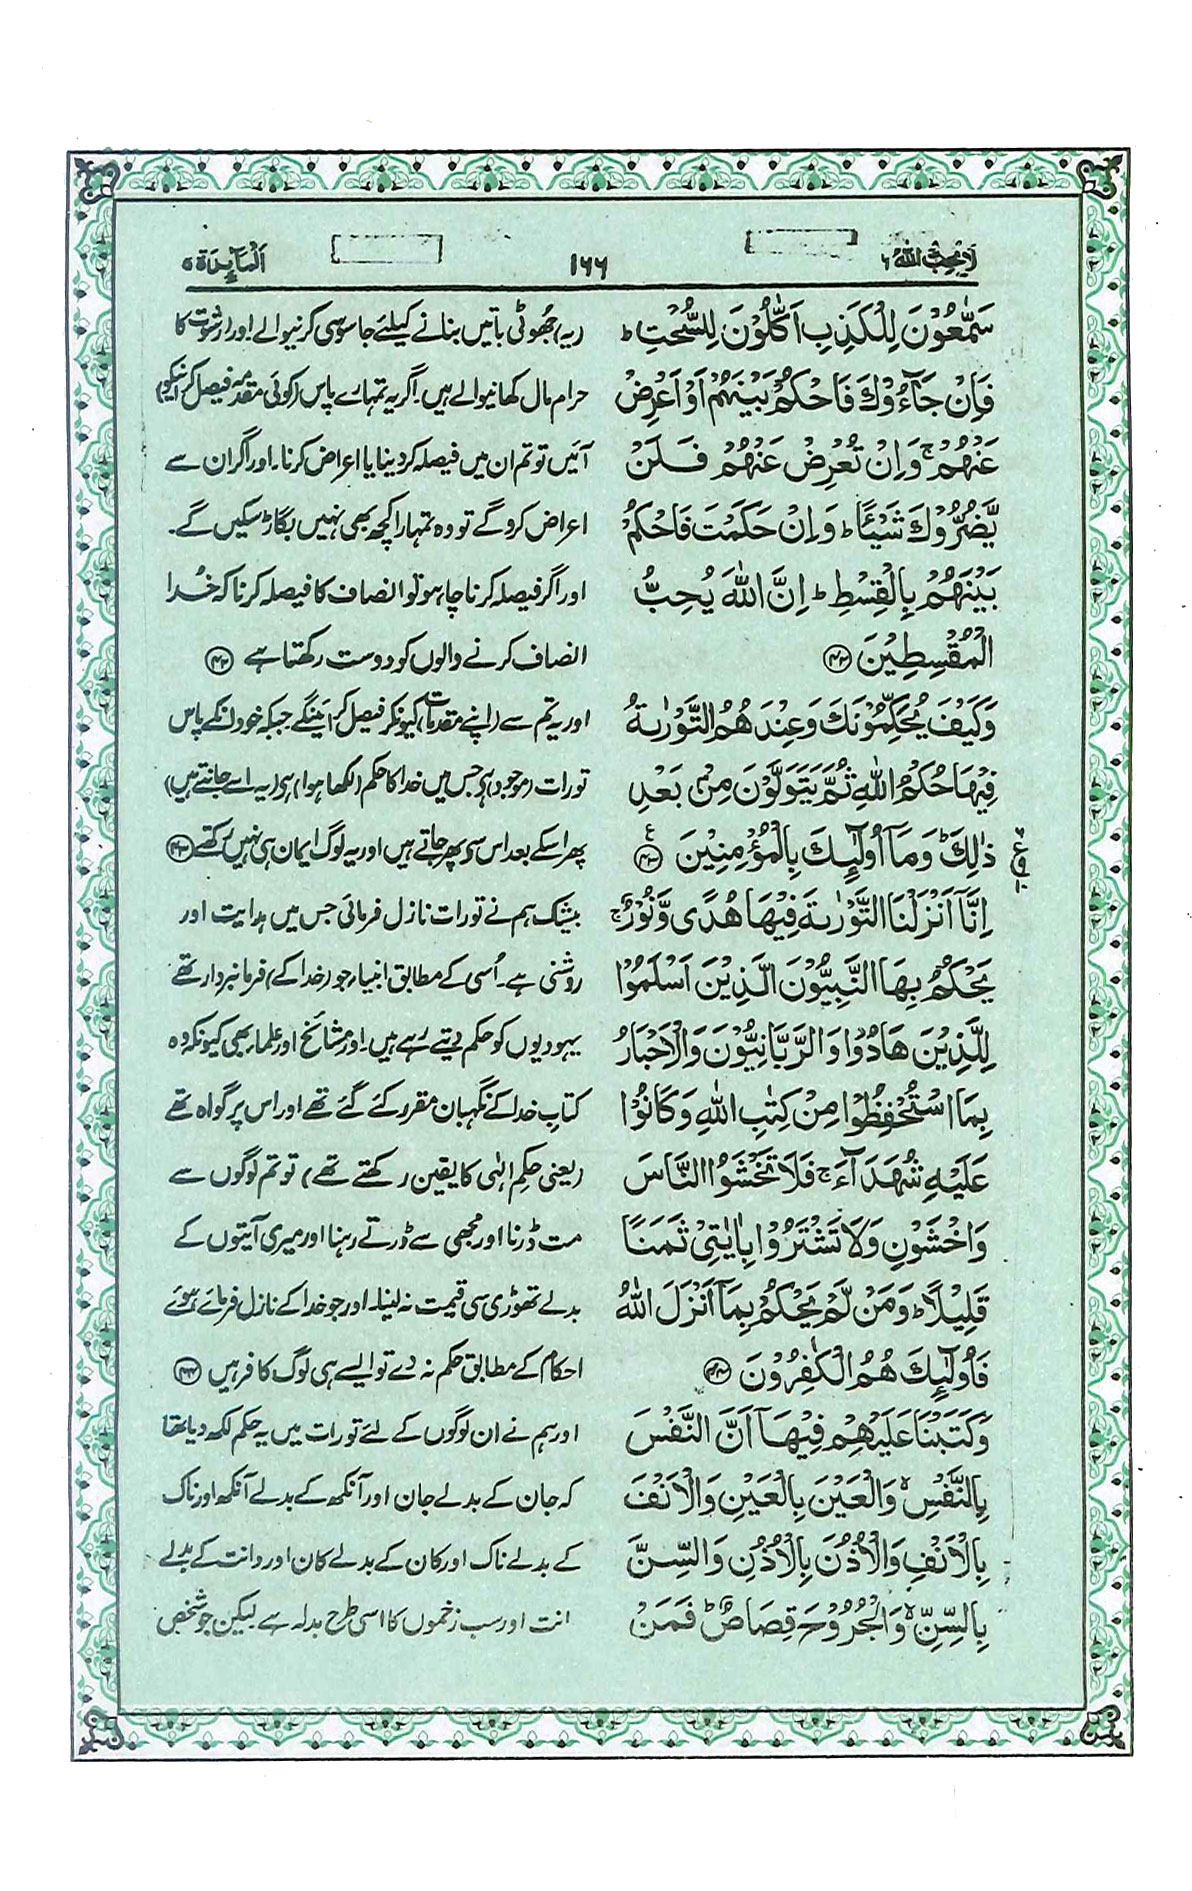 لَا يُحِبُّ اللّٰهُ ٦ ١٦٦ اَلْمَآئِدَة ٥
سَمّٰعُوْنَ لِلْكَذِبِ اَكّٰلُوْنَ لِلسُّحْتِ ؕ (یہ) جھوٹی باتیں بنانے کیلئے جاسوسی کرنیوالے اور (رشوت کا)
فَاِنْ جَآءُوْكَ فَاحْكُمْ بَيْنَهُمْ اَوْ اَعْرِضْ حرام مال کھانیوالے ہیں۔ اگر یہ تمہارے پاس (کوئی مقدمہ فیصل کرانیکو)
عَنْهُمْ ۚ وَاِنْ تُعْرِضْ عَنْهُمْ فَلَنْ آئیں تو تم ان میں فیصلہ کر دینا یا اعراض کرنا۔ اور اگر ان سے
يَّضُرُّوْكَ شَيْـًٔا ؕ وَاِنْ حَكَمْتَ فَاحْكُمْ اعراض کرو گے تو وہ تمہارا کچھ بھی نہیں بگاڑ سکیں گے۔
بَيْنَهُمْ بِالْقِسْطِ ؕ اِنَّ اللّٰهَ يُحِبُّ اور اگر فیصلہ کرنا چاہو تو انصاف کا فیصلہ کرنا کہ خُدا
الْمُقْسِطِيْنَ ﴿۴۲﴾ انصاف کرنے والوں کو دوست رکھتا ہے ﴿۴۲﴾
وَكَيْفَ يُحَكِّمُوْنَكَ وَعِنْدَهُمُ التَّوْرٰىةُ اور یہ تم سے (اپنے مقدمات) کیونکر فیصل کرائینگے جبکہ خود انکے پاس
فِيْهَا حُكْمُ اللّٰهِ ثُمَّ يَتَوَلَّوْنَ مِنْۢ بَعْدِ تورات (موجود) ہی جس میں خدا کا حکم (لکھا ہوا) ہی (یہ اسے جانتے ہیں)
ذٰلِكَ ؕ وَمَاۤ اُولٰٓئِكَ بِالْمُؤْمِنِيْنَ ﴿۴۳﴾ پھر اسکے بعد اس سی پھر جاتے ہیں اور یہ لوگ ایمان ہی نہیں رکھتے ﴿۴۳﴾
اِنَّاۤ اَنْزَلْنَا التَّوْرٰىةَ فِيْهَا هُدًى وَّنُوْرٌ ۚ بیشک ہم نے تورات نازل فرمائی جس میں ہدایت اور
يَحْكُمُ بِهَا النَّبِيُّوْنَ الَّذِيْنَ اَسْلَمُوْا روشنی ہے۔ اُسی کے مطابق انبیاء جو (خدا کے) فرمانبردار تھے
لِلَّذِيْنَ هَادُوْا وَالرَّبَّانِيُّوْنَ وَالْاَحْبَارُ یہودیوں کو حکم دیتے رہے ہیں۔ اور مشائخ اور علماء بھی کیونکہ وہ
بِمَا اسْتُحْفِظُوْا مِنْ كِتٰبِ اللّٰهِ وَكَانُوْا کتاب خدا کے نگہبان مقرر کئے گئے تھے اور اس پر گواہ تھے
عَلَيْهِ شُهَدَآءَ ۚ فَلَا تَخْشَوُا النَّاسَ (یعنی حکم الٰہی کا یقین رکھتے تھے) تو تم لوگوں سے
وَاخْشَوْنِ وَلَا تَشْتَرُوْا بِاٰيٰتِيْ ثَمَنًا مت ڈرنا اور مجھی سے ڈرتے رہنا اور میری آیتوں کے
قَلِيْلًا ؕ وَمَنْ لَّمْ يَحْكُمْ بِمَاۤ اَنْزَلَ اللّٰهُ بدلے تھوڑی سی قیمت نہ لینا۔ اور جو خدا کے نازل فرمائے ہوئے
فَاُولٰٓئِكَ هُمُ الْكٰفِرُوْنَ ﴿۴۴﴾ احکام کے مطابق حکم نہ دے تو ایسے ہی لوگ کافر ہیں ﴿۴۴﴾
وَكَتَبْنَا عَلَيْهِمْ فِيْهَاۤ اَنَّ النَّفْسَ اور ہم نے ان لوگوں کے لئے تورات میں یہ حکم لکھ دیا تھا
بِالنَّفْسِ ۙ وَالْعَيْنَ بِالْعَيْنِ وَالْاَنْفَ کہ جان کے بدلے جان اور آنکھ کے بدلے آنکھ اور ناک
بِالْاَنْفِ وَالْاُذُنَ بِالْاُذُنِ وَالسِّنَّ کے بدلے ناک اور کان کے بدلے کان اور دانت کے بدلے
بِالسِّنِّ ۙ وَالْجُرُوْحَ قِصَاصٌ ؕ فَمَنْ انت اور سب زخموں کا اسی طرح بدلہ ہے۔ لیکن جو شخص